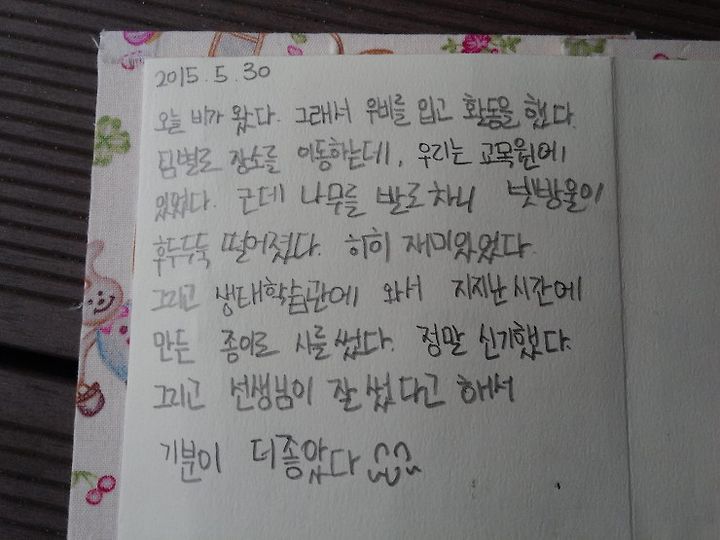 2015. 5. 30
오늘 비가 왔다. 그래서 우비를 입고 활동을 했다.
팀별로 장소를 이동하는데, 우리는 교목원에
있었다. 군데 나무를 발로 차니 빗방울이
후두두둑 떨어졌다. 히히 재미있었다.
그리고 생태학습관에 와서 지지난 시간에
만든 종이로 시를 썼다. 정말 신기했다.
그리고 선생님이 잘 썼다고 해서
기분이 더 좋았다